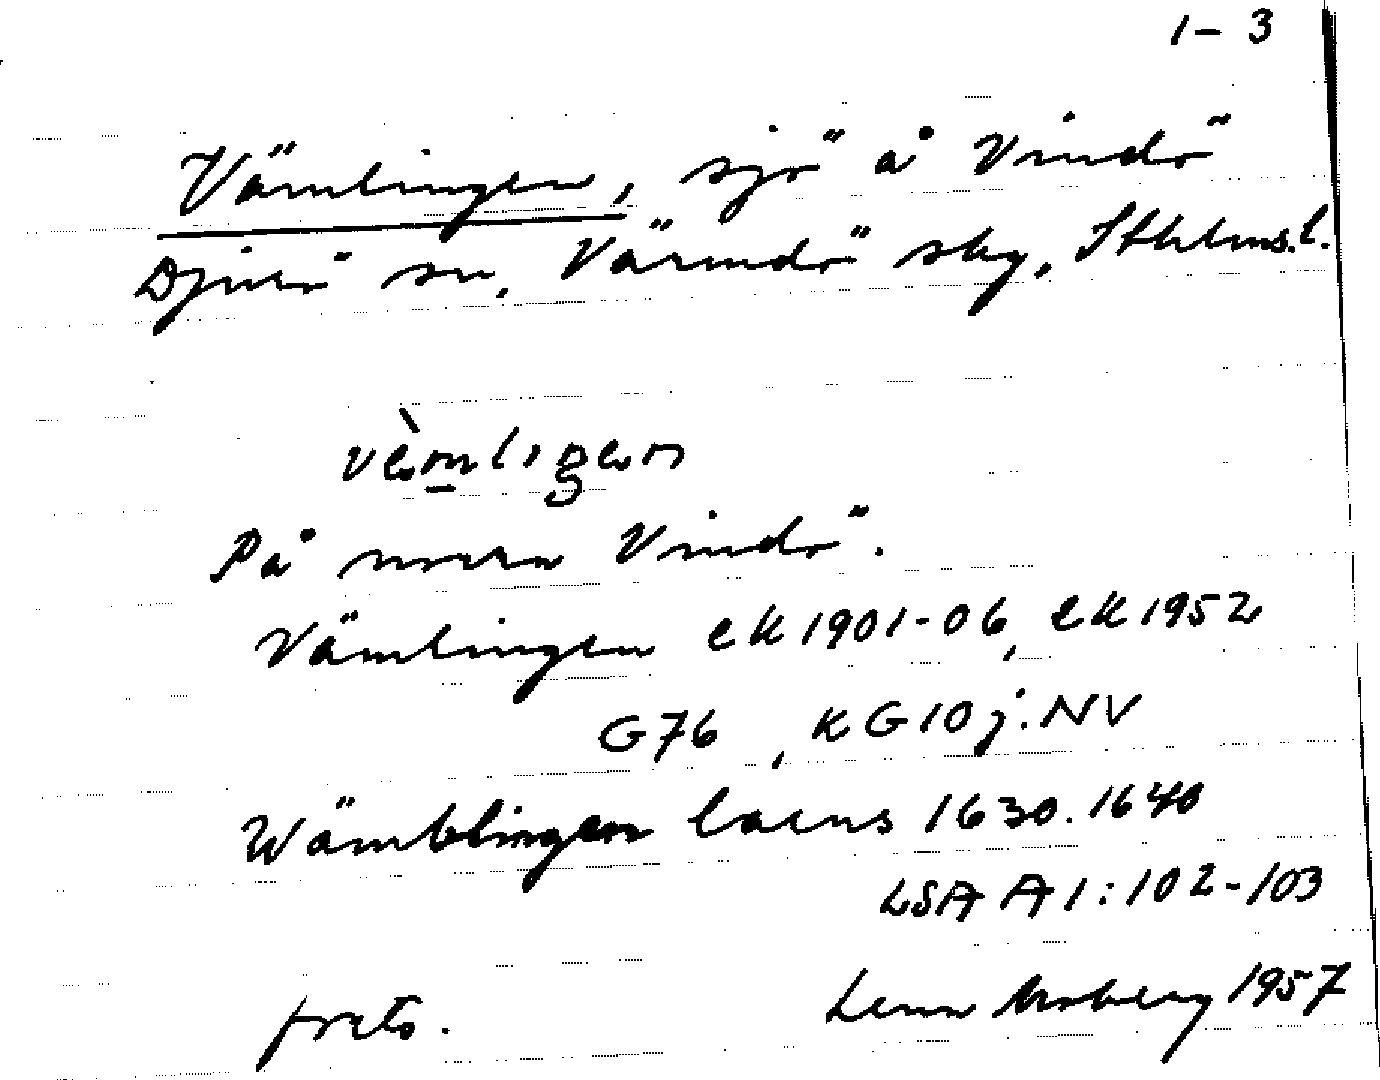 1-3
Vämlingen, sjö å Vindö
Djurö sn, Värmdö skg, Sthlms l.
vèm̲ligen
På norra Vindö.
Vämlingen ek 1901-06, ek 1952
G76, KG10 j. NV
Wämblingen lacus 1630. 1640
LSA A1:102-103
forts. Lena Moberg 1957